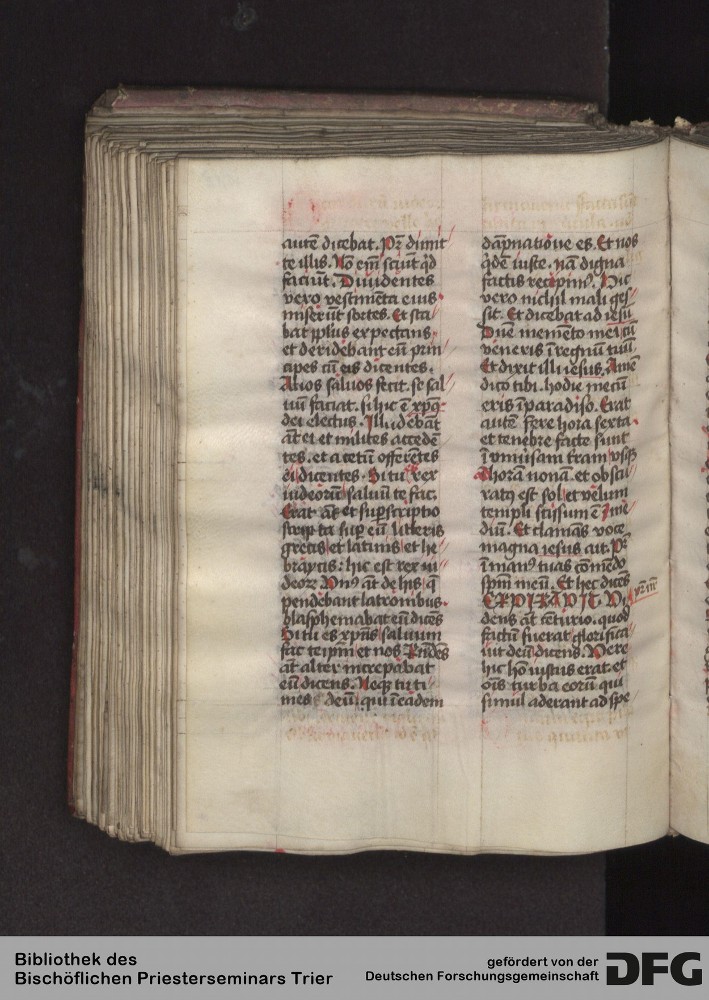 autē dicebat. Pr̄ dimit
te illis. Nō em̄ sciūt qd̄
faciūt. Dividentes
vero vestimēta eius
miserūt sortes. Et sta
bat pplus expectans.
et deridebant eū prin
cipes cū eis dicentes.
Alios saluos fecit. se sal
uū faciat. si hic ē xpc̄
dei electus. Illudebāt
āt ei et milites accedē
tes. et acetū offerētes
ei dicentes. Si tu rex
iudeorū saluū te fac.
Erat āt et suprscriptio
scripta sup eū litteris
grecis et latinis et he
braycis: hic est rex iu
deorꝝ Vnꝰ āt de his q̄
pendebant latronibus.
blasphemabat eū dicēs
Si tu es xpūs saluum
fac teipm̄ et nos Rn̄dēs
āt alter increpabat
eū dicens. Neqꝫ tu ti
mes deū qui ī eadem
dāpnatiōe es. Et nos
qdē iuste. nā digna
factis recipimꝰ. Hic
vero nichil mali ges
sit. Et dicebat ad iesū
Dn̄e memēto mei cū
veneris ī regnū tuū.
Et dixit illi iesus. Amē
dico tibi. hodie mecū
eris ī paradiso. Erat
autē fere hora sexta.
et tenebre facte sunt
ī vniūsam terram vsqꝫ
ad horā nonā. et obscu
ratꝰ est sol. et velum
templi scissum ē ꝑ me
diū. Et clamās voce
magna iesus ait. Pr̄
ī manꝰ tuas cōmēdo
spm̄ meū. Et hec dicēs
EXPIRAVIT Vi
pr̄ nr̄
dens āt cēturio. quod
factū fuerat glorifica
uit deū dicens. Vere
hic hō iustus erat. et
oīs turba eorū qui
simul aderant ad spe
Bibliothek des
Bischöflichen Priesterseminars Trier
gefördert von der
Deutschen Forschungsgemeinschaft
DFG